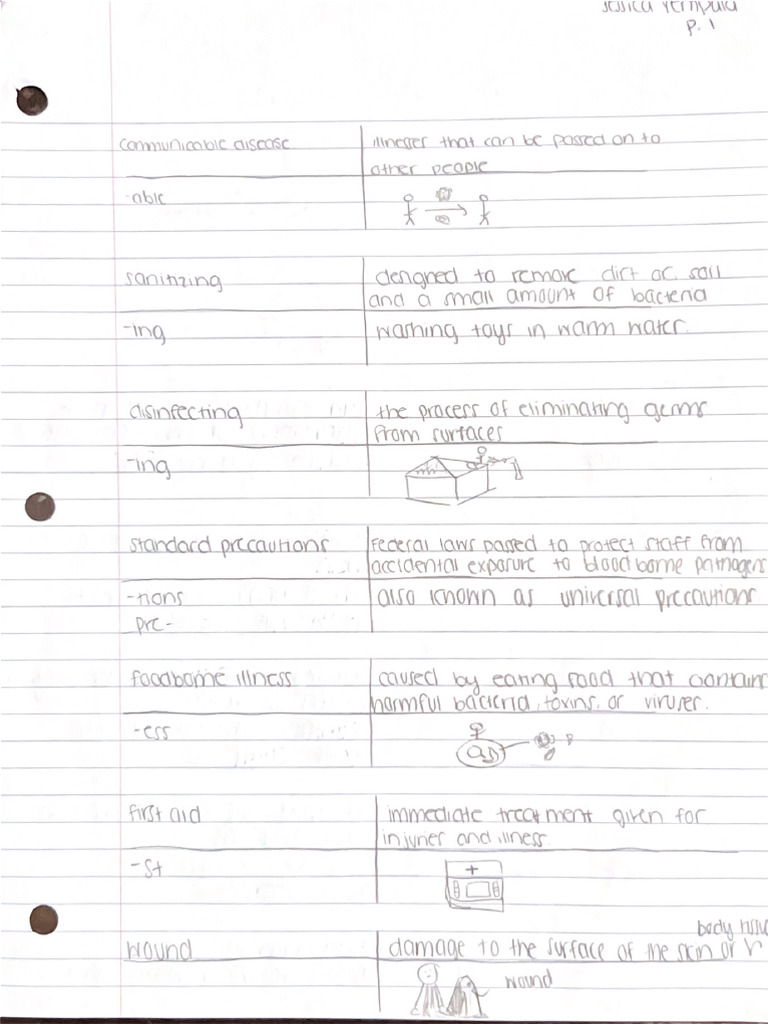 p. 1
communicable disease
illnesses that can be passed on to
other people
-able
sanitizing
designed to remove dirt or soil
and a small amount of bacteria
-ing
washing toys in warm water.
disinfecting
the process of eliminating germs
from surfaces
-ing
standard precautions
Federal laws passed to protect staff from
accidental exposure to bloodborne pathogens
-tions
also known as universal precautions
pre-
foodborne illness
caused by eating food that contains
harmful bacteria, toxins, or viruses.
-ess
first aid
immediate treatment given for
injuries and illness.
-st
body
wound
damage to the surface of the skin or
wound